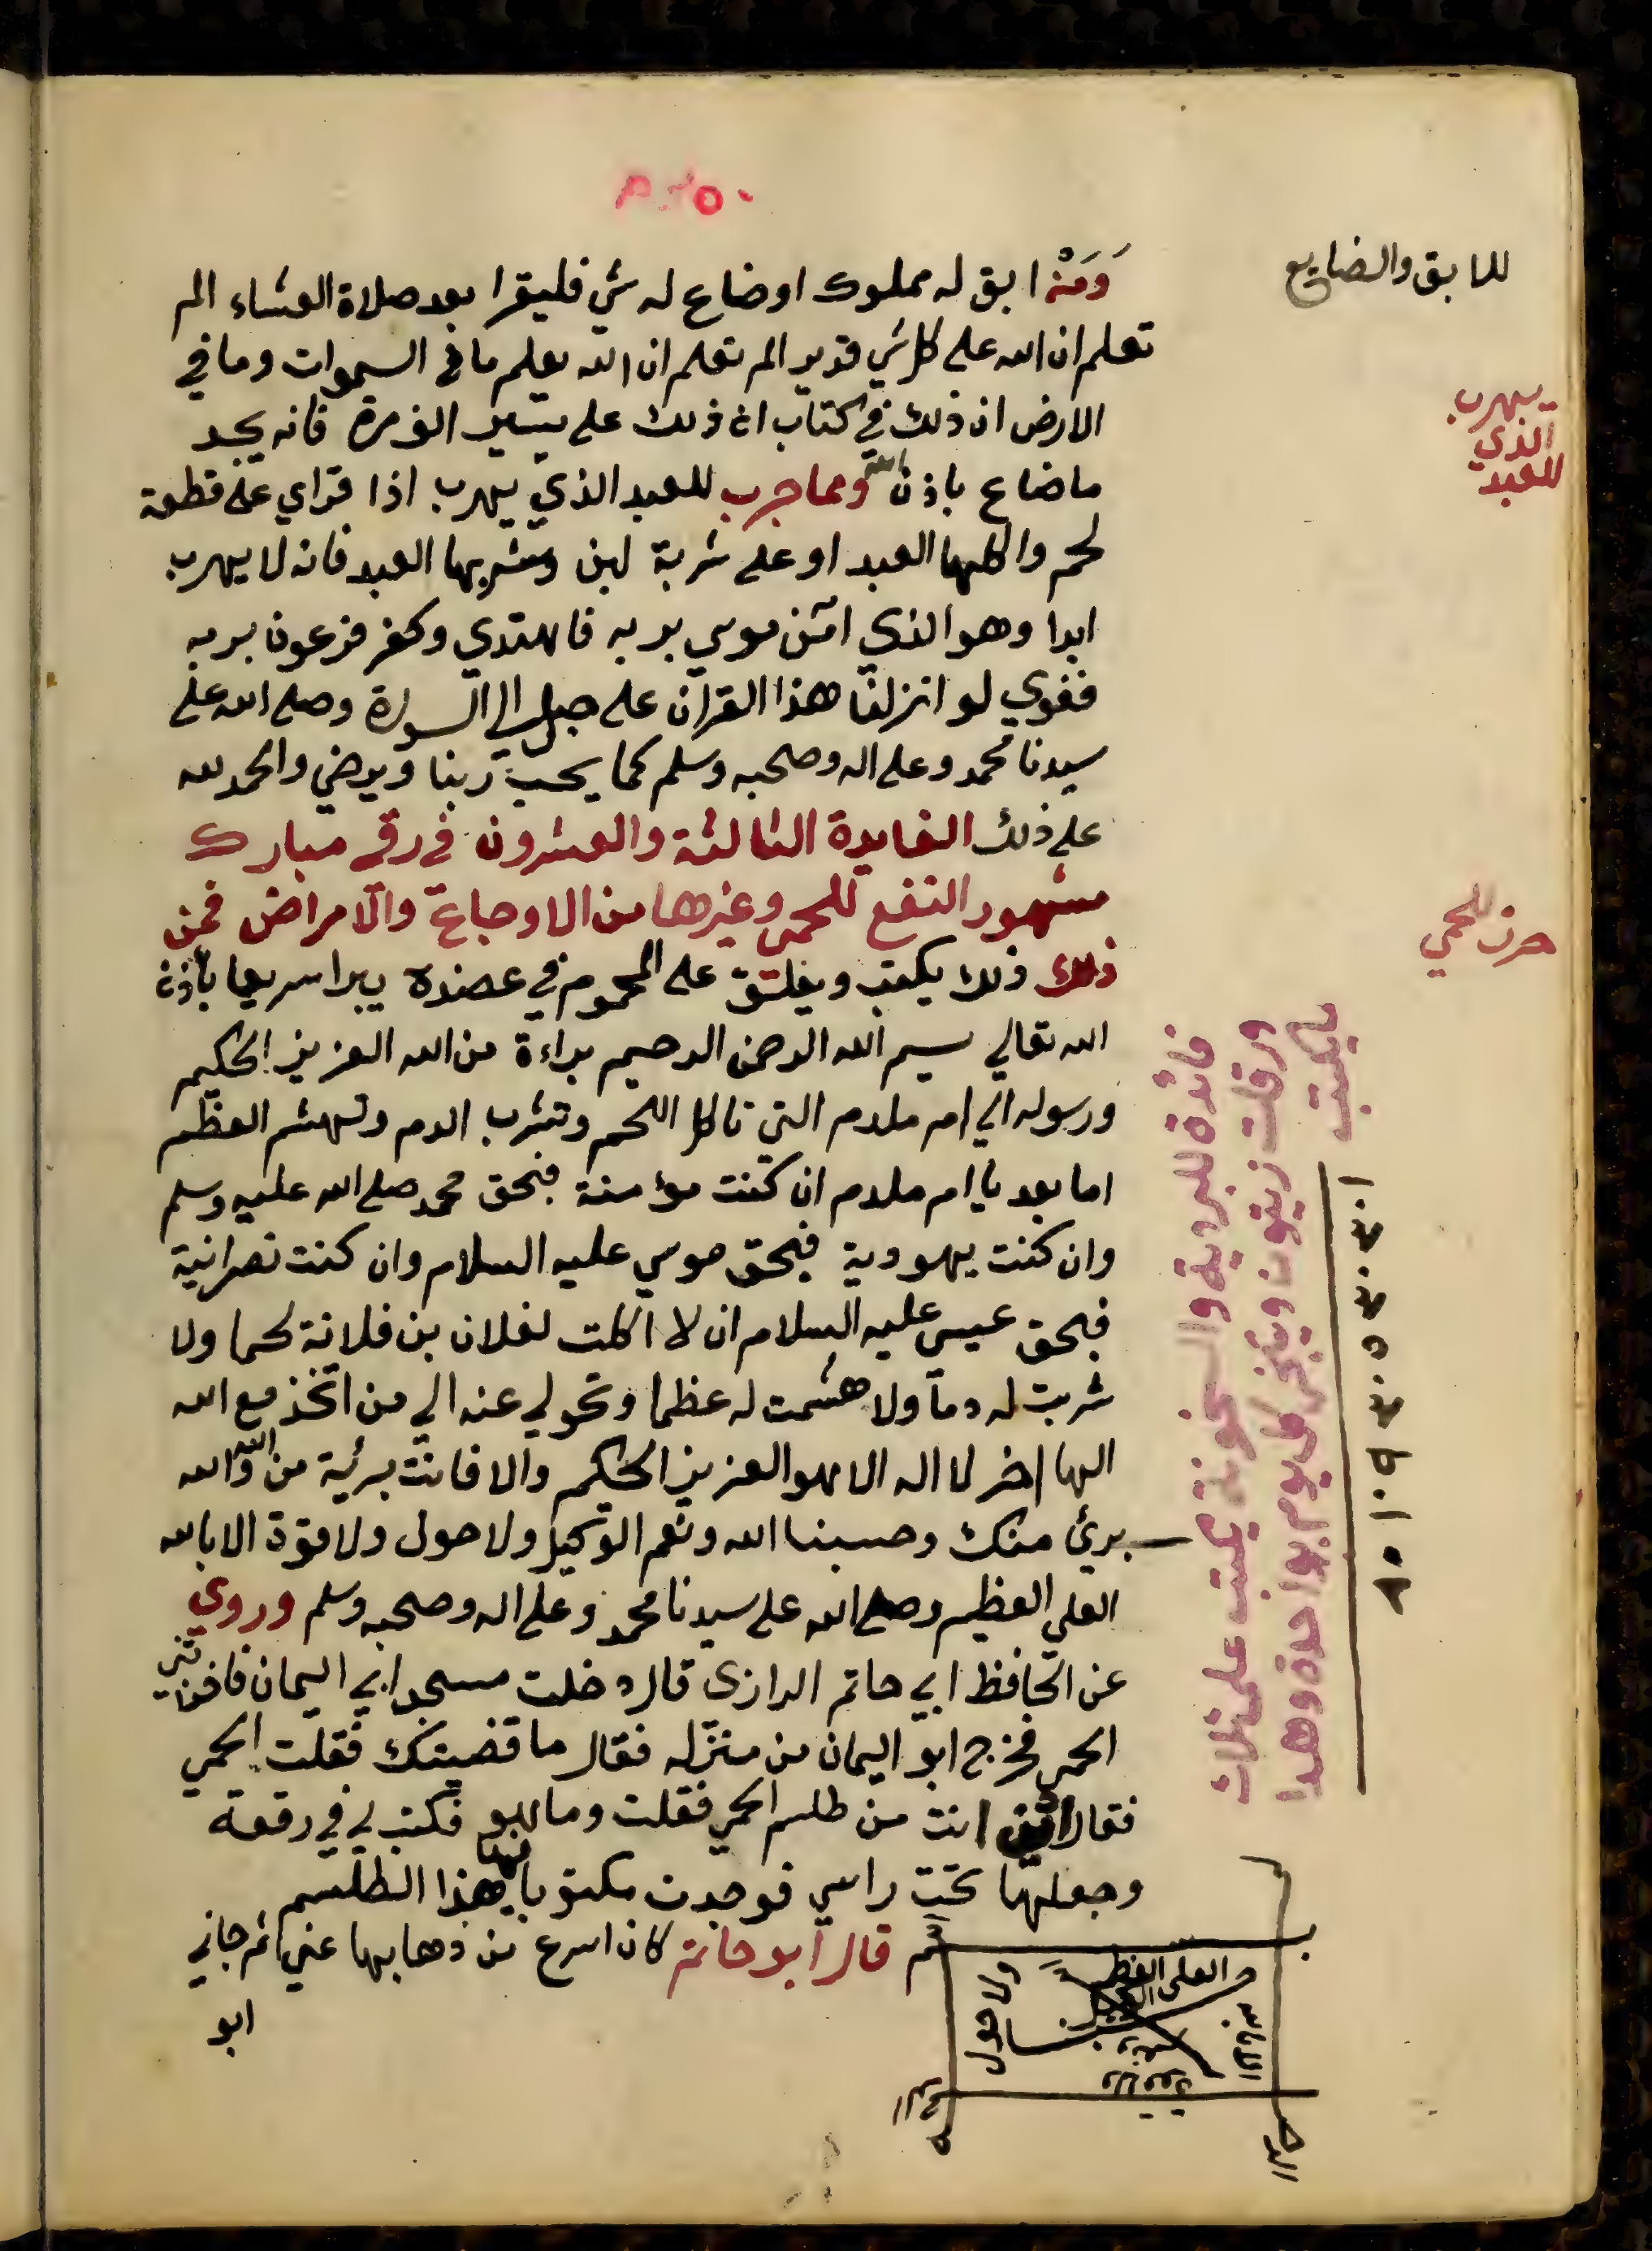 للابق والضايع
وَمَنْ ابق له مملوك اوضاع له شي فليقرا بعد صلاة العشاء الم
تعلم ان الله على كل شي قدير الم تعلم ان الله يعلم ما في السموات وما في
الارض ان ذلك في كتاب ان ذلك على يسير الف مرة فانه يجد
ما ضاع باذن الله ومما جرب للعبد الذي يهرب اذا قراي على قطعة
لحم واكلها العبد او على شربة لبن وشربها العبد فانه لا يهرب
ابدا وهو الذي امن موسي بربه فاهتدي وكفر فرعون بربه
فغوي لو انزلنا هذا القران على جبل الي السورة وصلى الله على
سيدنا محمد وعلى اله وصحبه وسلم كما يحب ربنا ويرضي والحمد لله
على ذلك الفايدة الثالثة والعشرون في رقي مبارك
مشهور النفع للحمى وغيرها من الاوجاع والامراض فمن
ذلك ذلك يكتب ويعلق على المحموم في عضده يبرا سريعا باذن
الله تعالي بسم الله الرحمن الرحيم براءة من الله العزيز الحكيم
ورسوله الي ام ملدم التي تاكل اللحم وتشرب الدم وتهشم العظم
اما بعد يا ام ملدم ان كنت مؤمنة فبحق محمد صلى الله عليه وسلم
وان كنت يهودية فبحق موسي عليه السلام وان كنت نصرانية
فبحق عيسى عليه السلام ان لا اكلت لفلان بن فلانة لحما ولا
شربت له دما ولا هشمت له عظما وتحولي عنه الي من اتخذ مع الله
الها اخر لا اله الا هو العزيز الحكيم والا فانت بريئة من الله والله
برئ منك وحسبنا الله ونعم الوكيل ولا حول ولا قوة الا بالله
العلي العظيم وصلى الله على سيدنا محمد وعلى اله وصحبه وسلم وروي
عن الحافظ ابي حاتم الرازى قال دخلت مسجد ابي اليمان فاخذتني
الحمى فخرج ابو اليمان من منزله فقال ما قضيتك فقلت الحمي
فقال اين انت من طلسم الحمى فقلت وما هو فكتب لي في رقعة
وجعلها تحت راسي فوجدت مكتوبا فيها هذا الطلسم
قال ابو حاتم كان اسرع من ذهابها عني ثم جاني
ابو
يهرب
الذي
للعبد
حرز للحمي
فائدة للبردية والسخونة يكتب على ثلاث
ورقات زيتون ويبخر كل يوم بواحدة وهدا
ما يكتب
العلى العظيم
ولا حول
الا بالله